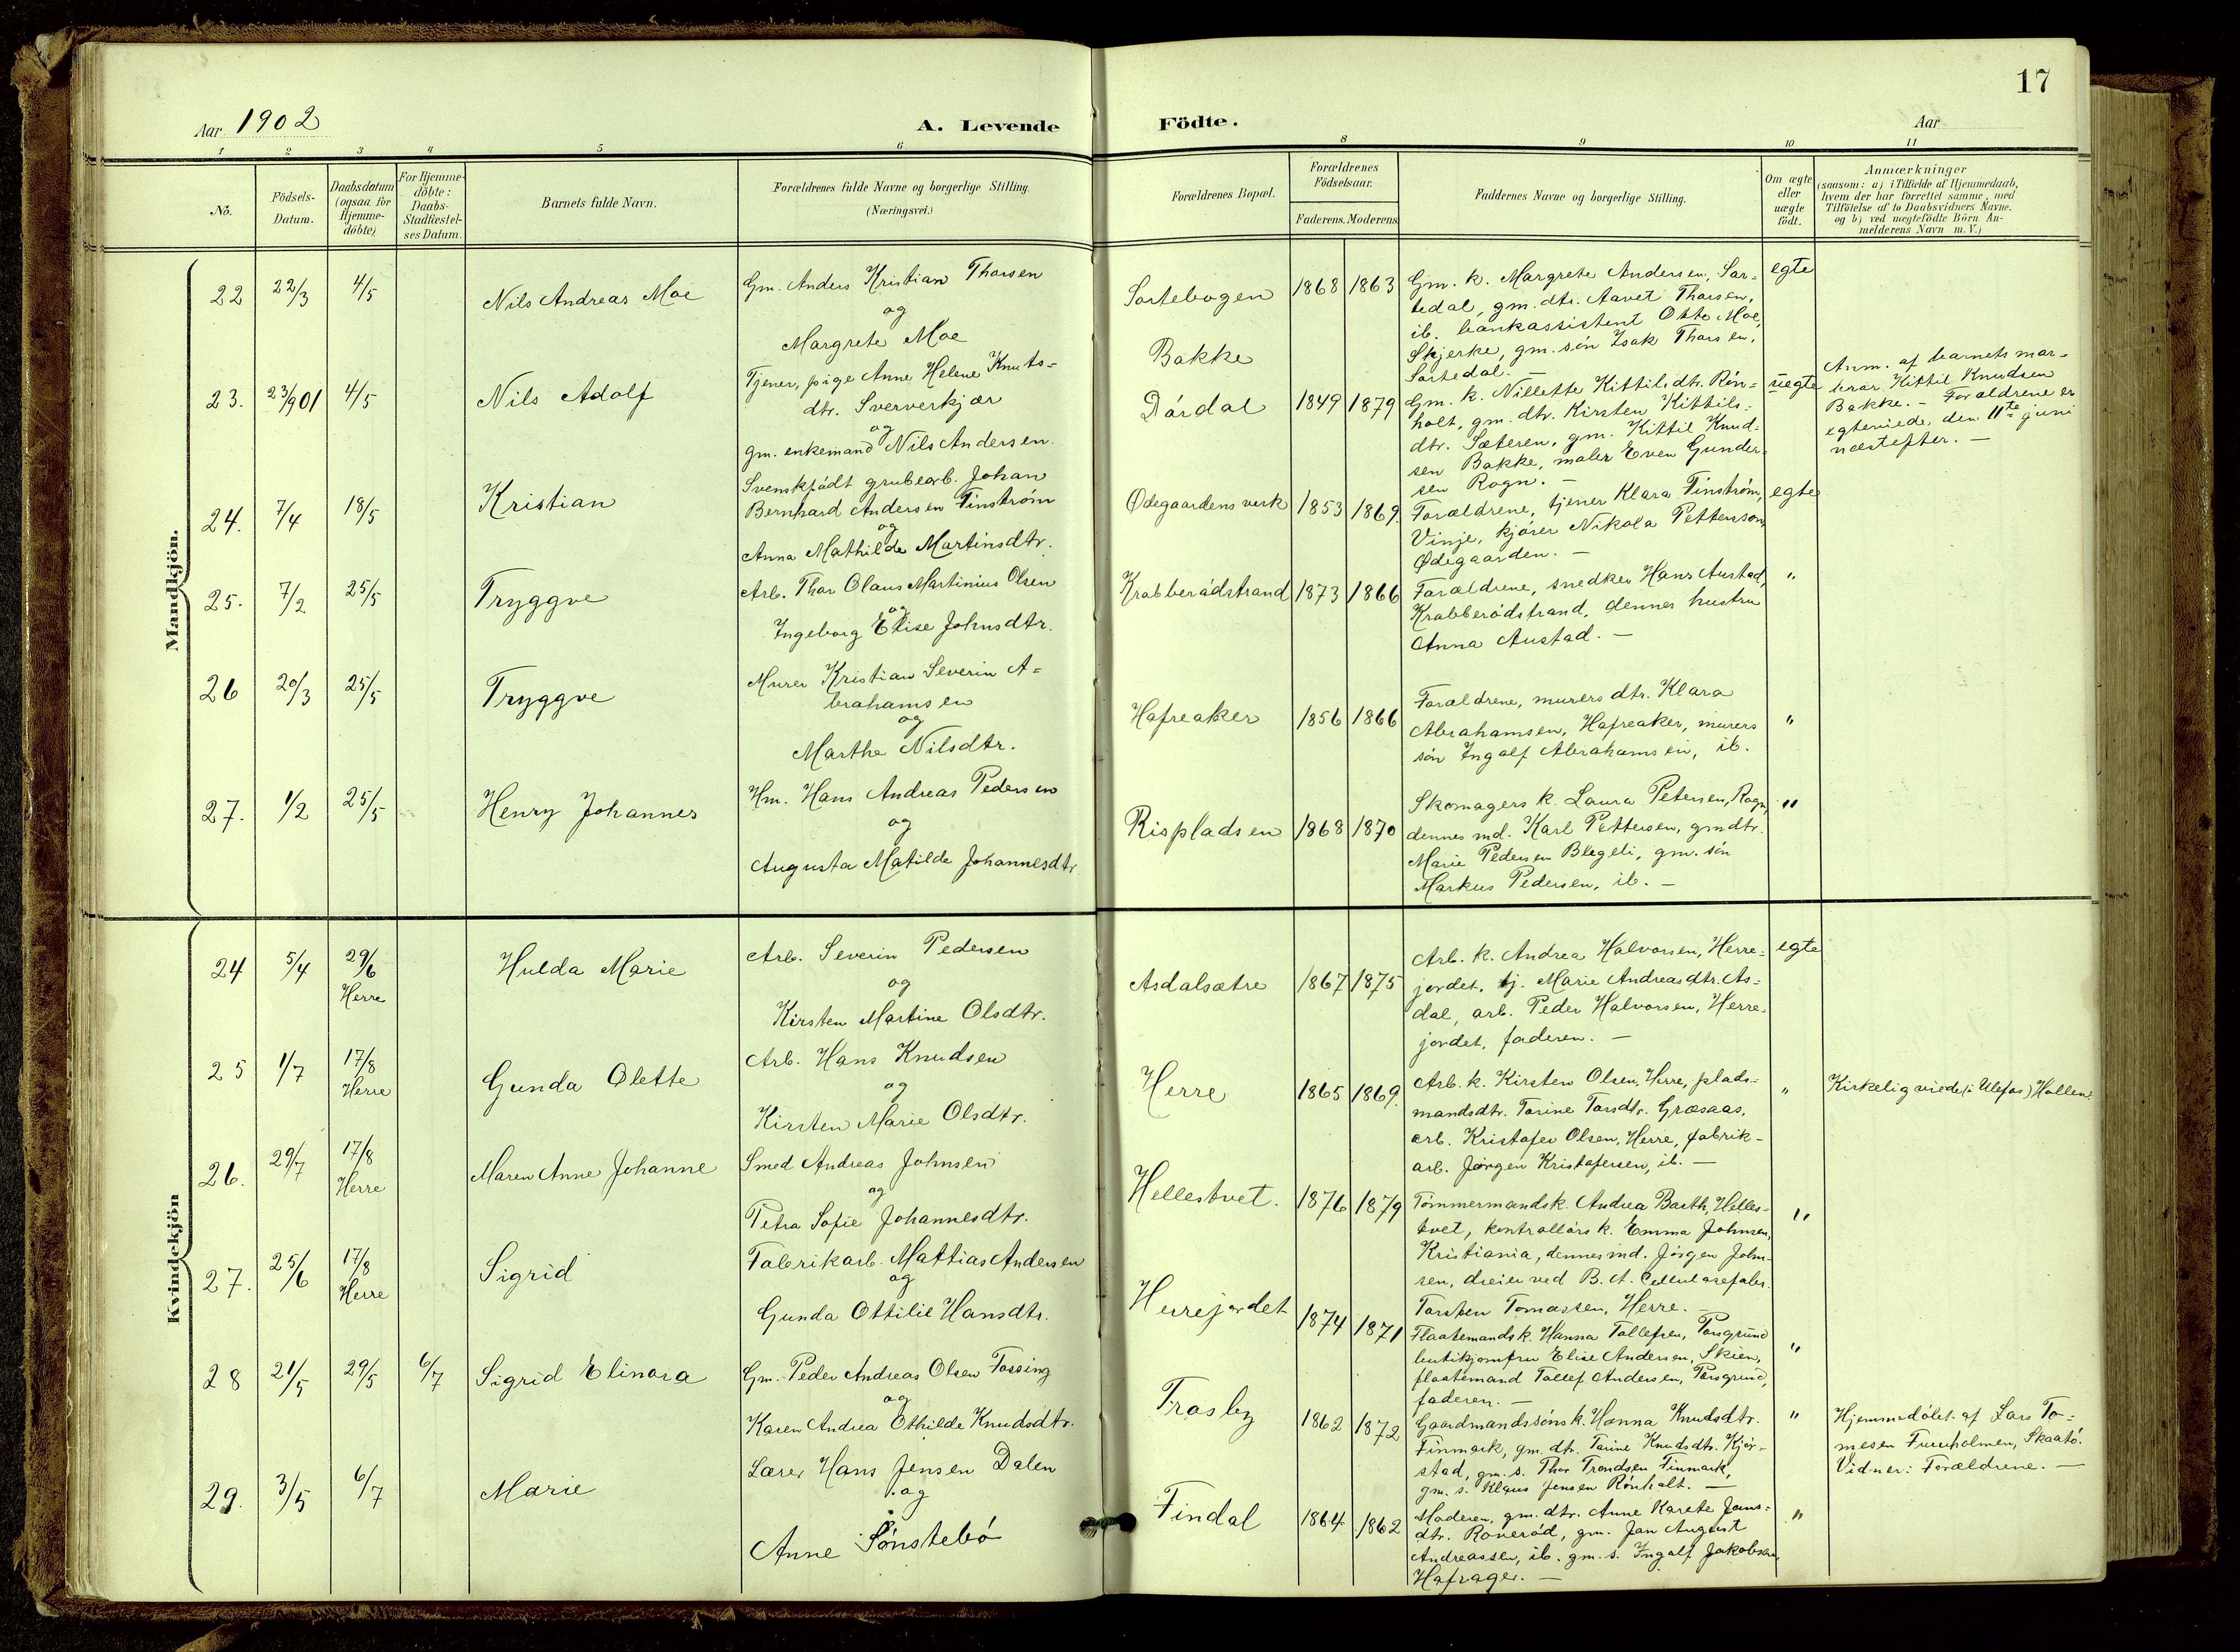 17
Aar 1902
A. Levende
Födte.
Aar
1 2 3 4 5 6 8 9 10 11
No.
Födsels-
Datum.
Daabsdatum
(ogsaa for
Hjemme-
döbte)
For Hjemme-
döbte:
Daabs-
Stadfæstel-
ses Datum.
Barnets fulde Navn.
Forældrenes fulde Navne og borgerlige Stilling.
(Næringsvei.)
Forældrenes Bopæl.
Forældrenes
Födselsaar.
Faderens. Moderens
Faddernes Navne og borgerlige Stilling.
Om ægte
eller
uægte
födt.
Anmærkninger
(saasom: a) i Tilfælde af Hjemmedaab,
hvem der har forrettet samme, med
Tilföielse af to Daabsvidners Navne.
og b) ved uægtefödte Börn An-
melderens Navn m. V.)
Mandkjön.
22
22/3
4/5
Nils Andreas Moe
Gm. Anders Kristian Thorsen
og
Margrete Moe
Sortebogen
Bakke
1868 1863
Gm. k. Margrete Andersen, Sor-
tedal, gm. dtr. Aavet Thorsen,
ib. bankassistent Otto Moe,
Skjerke, gm. sön Isak Thorsen,
Sortedal. —
egte
23.
23/9 01
4/5
Nils Adolf
Tjener, pige Anne Helene Knuts-
dtr. Sververkjær
og
gm. enkemand Nils Andersen.
Dördal
1849 1879
Gm. k. Nillette Kittilsdtr. Rön-
holt, gm. dtr. Kirsten Kittils-
dtr. Sæteren, gm. Kittil Knud-
sen Bakke, maler Even Gunder-
sen Rogn. —
uegte
Anm. af barnets mor-
bror Kittil Knudsen
Bakke. — Forældrene er
egteviede den 11te juni
næstefter. —
24.
7/4
18/5
Kristian
Svenskfödt grubearb. Johan
Bernhard Andersen Finström
og
Anna Mathilde Martinsdtr.
Ødegaardens verk
1853 1869.
Forældrene, tjener Klara Finström,
Vinje, kjörer Nikola Petterson,
Ødegaarden. —
egte
25.
7/2
25/5
Tryggve
Arb. Thor Olaus Martinius Olsen
og
Ingeborg Elise Johnsdtr.
Krabberödstrand
1873 1866
Forældrene, snedker Hans Austad,
Krabberödstrand, dennes hustru
Anna Austad. —
"
26
20/3
25/5
Tryggve
Murer Kristian Severin A-
brahamsen
og
Marthe Nilsdtr.
Hafreaker
1856 1866
Forældrene, murers dtr. Klara
Abrahamsen, Hafreaker, murers
sön Ingolf Abrahamsen, ib.
"
27.
1/2
25/5
Henry Johannes
Hm. Hans Andreas Pedersen
og
Augusta Matilde Johannesdtr.
Rispladsen
1868 1870
Skomagers k. Laura Petersen, Rogn,
dennes md. Karl Pettersen, gmdtr.
Marie Pedersen Blegeli, gm. sön
Markus Pedersen, ib. —
"
Kvindekjön
24
5/4
29/6
Herre
Hulda Marie
Arb. Severin Pedersen
og
Kirsten Martine Olsdtr.
Asdalsætre
1867 1875
Arb. k. Andrea Halvorsen, Herre-
jordet, tj. Marie Andreasdtr. As-
dal, arb. Peder Halvorsen, Herre-
jordet, faderen. —
egte
25
1/7
17/8
Herre
Gunda Olette
Arb. Hans Knudsen
og
Kirsten Marie Olsdtr.
Herre
1865 1869.
Arb. k. Kirsten Olsen, Herre, plads-
mandsdtr. Torine Torsdtr. Græsaas,
arb. Kristofer Olsen, Herre, fabrik-
arb. Jörgen Kristofersen, ib. —
"
Kirkelig viede (i Ulefos) Hollen.
26.
29/7
17/8
Herre
Maren Anne Johanne
Smed Andreas Johnsen
og
Petra Sofie Johannesdtr.
Hellestvet.
1876 1879
Tömmermandsk. Andrea Barth, Helles-
tvet, kontrollörs k. Emma Johnsen,
Kristiania, dennes md. Jörgen John-
sen, dreier ved B. A. Cellulosefabr.
Torsten Tomassen, Herre. —
"
27.
25/6
17/8
Herre
Sigrid
Fabrikarb. Mattias Andersen
og
Gunda Ottilie Hansdtr.
Herrejordet
1874 1871
Flaatemands k. Hanna Tollefsen, Porsgrund
butikjomfru Elise Andersen, Skien,
flaatemand Tollef Andersen, Porsgrund,
faderen. —
"
28
21/5
29/5
6/7
Sigrid Elinora
Gm. Peder Andreas Olsen Fossing
og
Karen Andrea Othilde Knudsdtr.
Trosby
1862 1872
Gaardmandssöns k. Hanna Knudsdtr.
Finmark, gm. dtr. Torine Knudsdtr. Kjör-
stad, gm. s. Thor Trondsen Finmark,
gm. s. Klaus Jensen Rönholt. —
"
Hjemmedöbt af Lars To-
mesen Furuholmen, Skaatö.
Vidner: Forældrene. —
29.
3/5
6/7
Marie
Lærer Hans Jensen Dalen
og
Anne Sönstebö
Findal
1864 1862
Moderen, gm. dtr. Anne Karete Jans-
dtr. Roneröd, gm. Jan August
Andreassen, ib. gm. s. Ingolf Jakobsen,
Hafrager. —
"